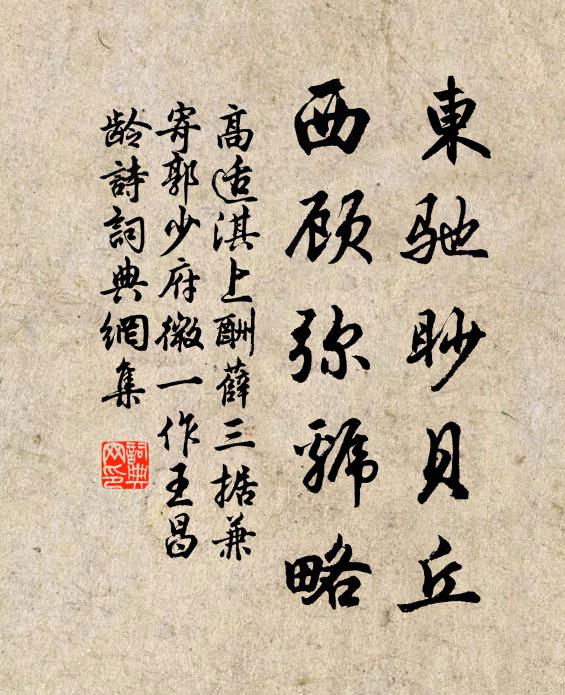 東驰眇貝丘
西顾弥虢略
高适淇上酬薛三据兼
寄郭少府微一作王昌
龄詩詞典網集
詞典
网印